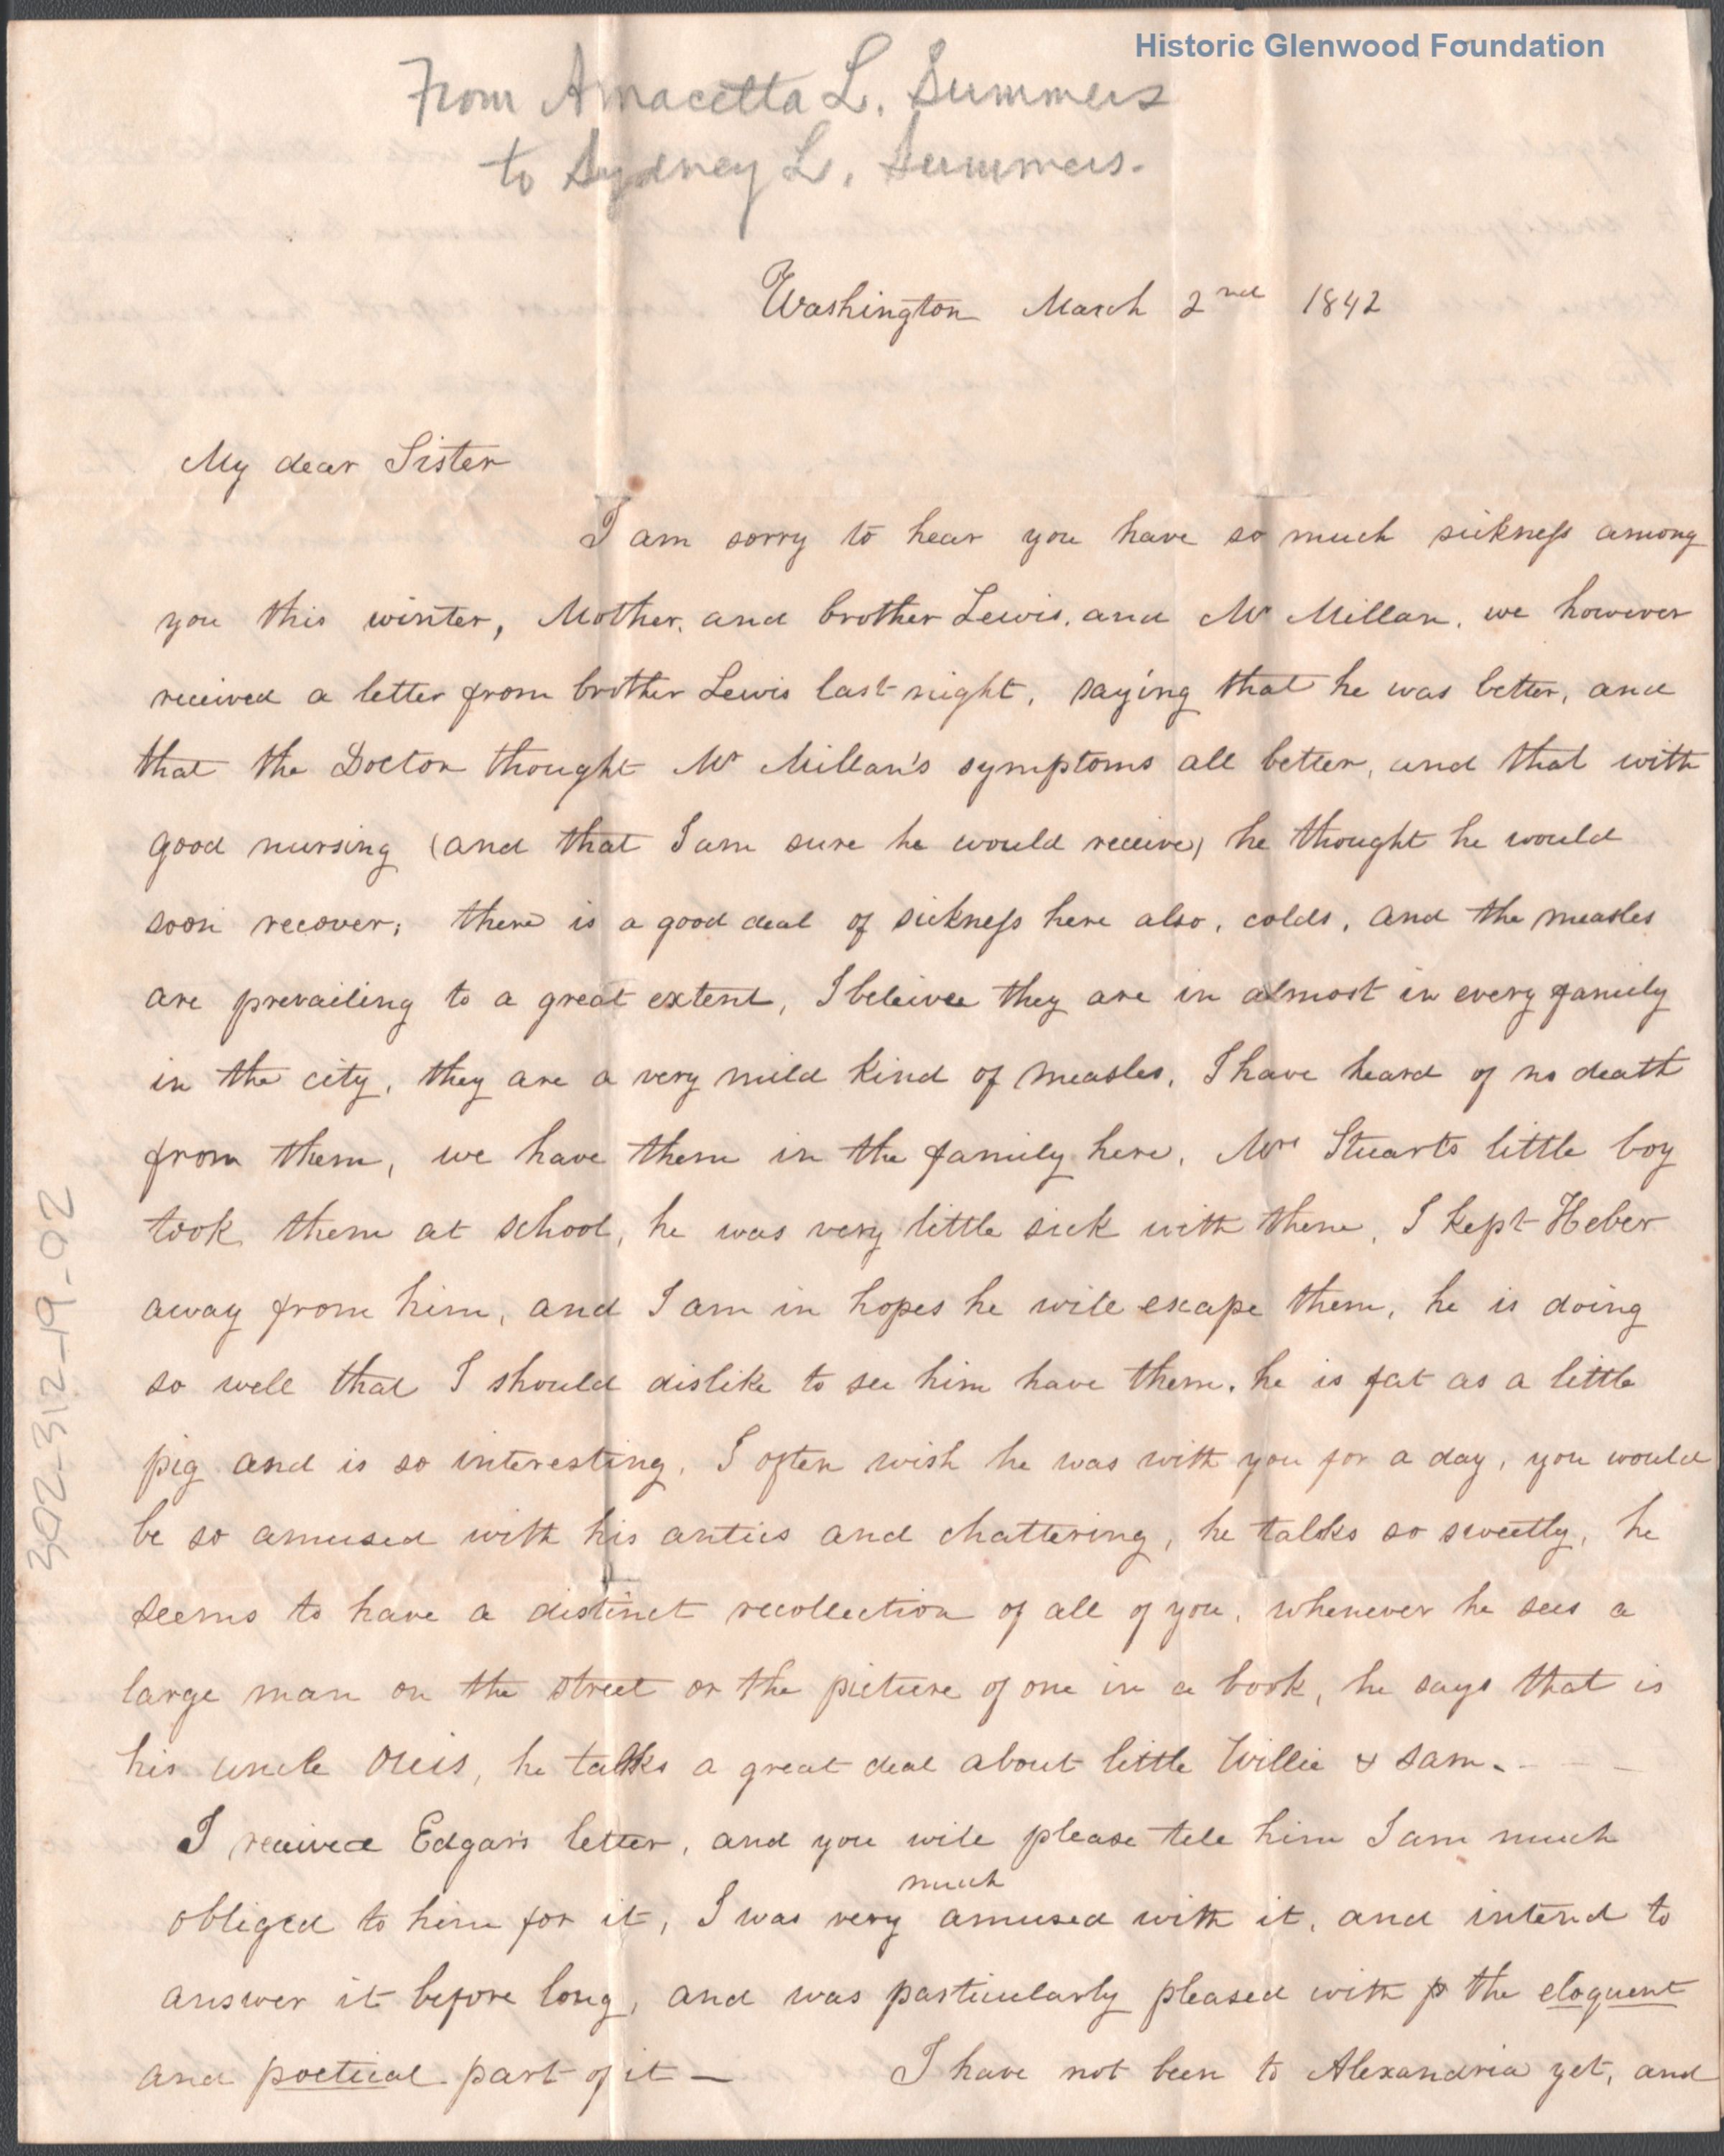 Historic Glenwood Foundation
From Amacetta L. Summers
to Sydney L. Summers.
Washington March 2nd 1842
My dear Sister
I am sorry to hear you have so much sickness among
you this winter, Mother, and brother Lewis, and Mr Millan, we however
received a letter from brother Lewis last night, saying that he was better, and
that the Doctor thought Mr Millan's symptoms all better, and that with
good nursing (and that I am sure he would receive) he thought he would
soon recover; there is a good deal of sickness here also, colds, and the measles
are prevailing to a great extent, I beleivee they are in almost in every family
in the city, they are a very mild kind of measles, I have heard of no death
from them, we have them in the family here, Mrs Stuarts little boy
took them at school, he was very little sick with them, I kept Heber
away from him, and I am in hopes he will escape them, he is doing
so well that I should dislike to see him have them. he is fat as a little
pig and is so interesting, I often wish he was with you for a day, you would
be so amused with his antics and chattering, he talks so sweetly, he
seems to have a distinct recollection of all of you, whenever he sees a
large man on the street or the picture of one in a book, he says that is
his uncle, he talks a great deal about little Willie & Sam.
I received Edgar's letter, and you will please tell him I am much
much
obliged to him for it, I was very amused with it, and intend to
answer it before long, and was particularly pleased with p the eloquent
and poetical part of it — I have not been to Alexandria yet, and
302-312-19-02